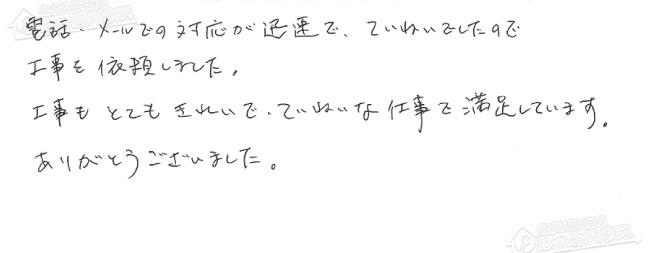 電話・メールでの対応が迅速で、ていねいでしたので
工事を依頼しました。
工事もとてもきれいで、ていねいな仕事で満足しています。
ありがとうございました。